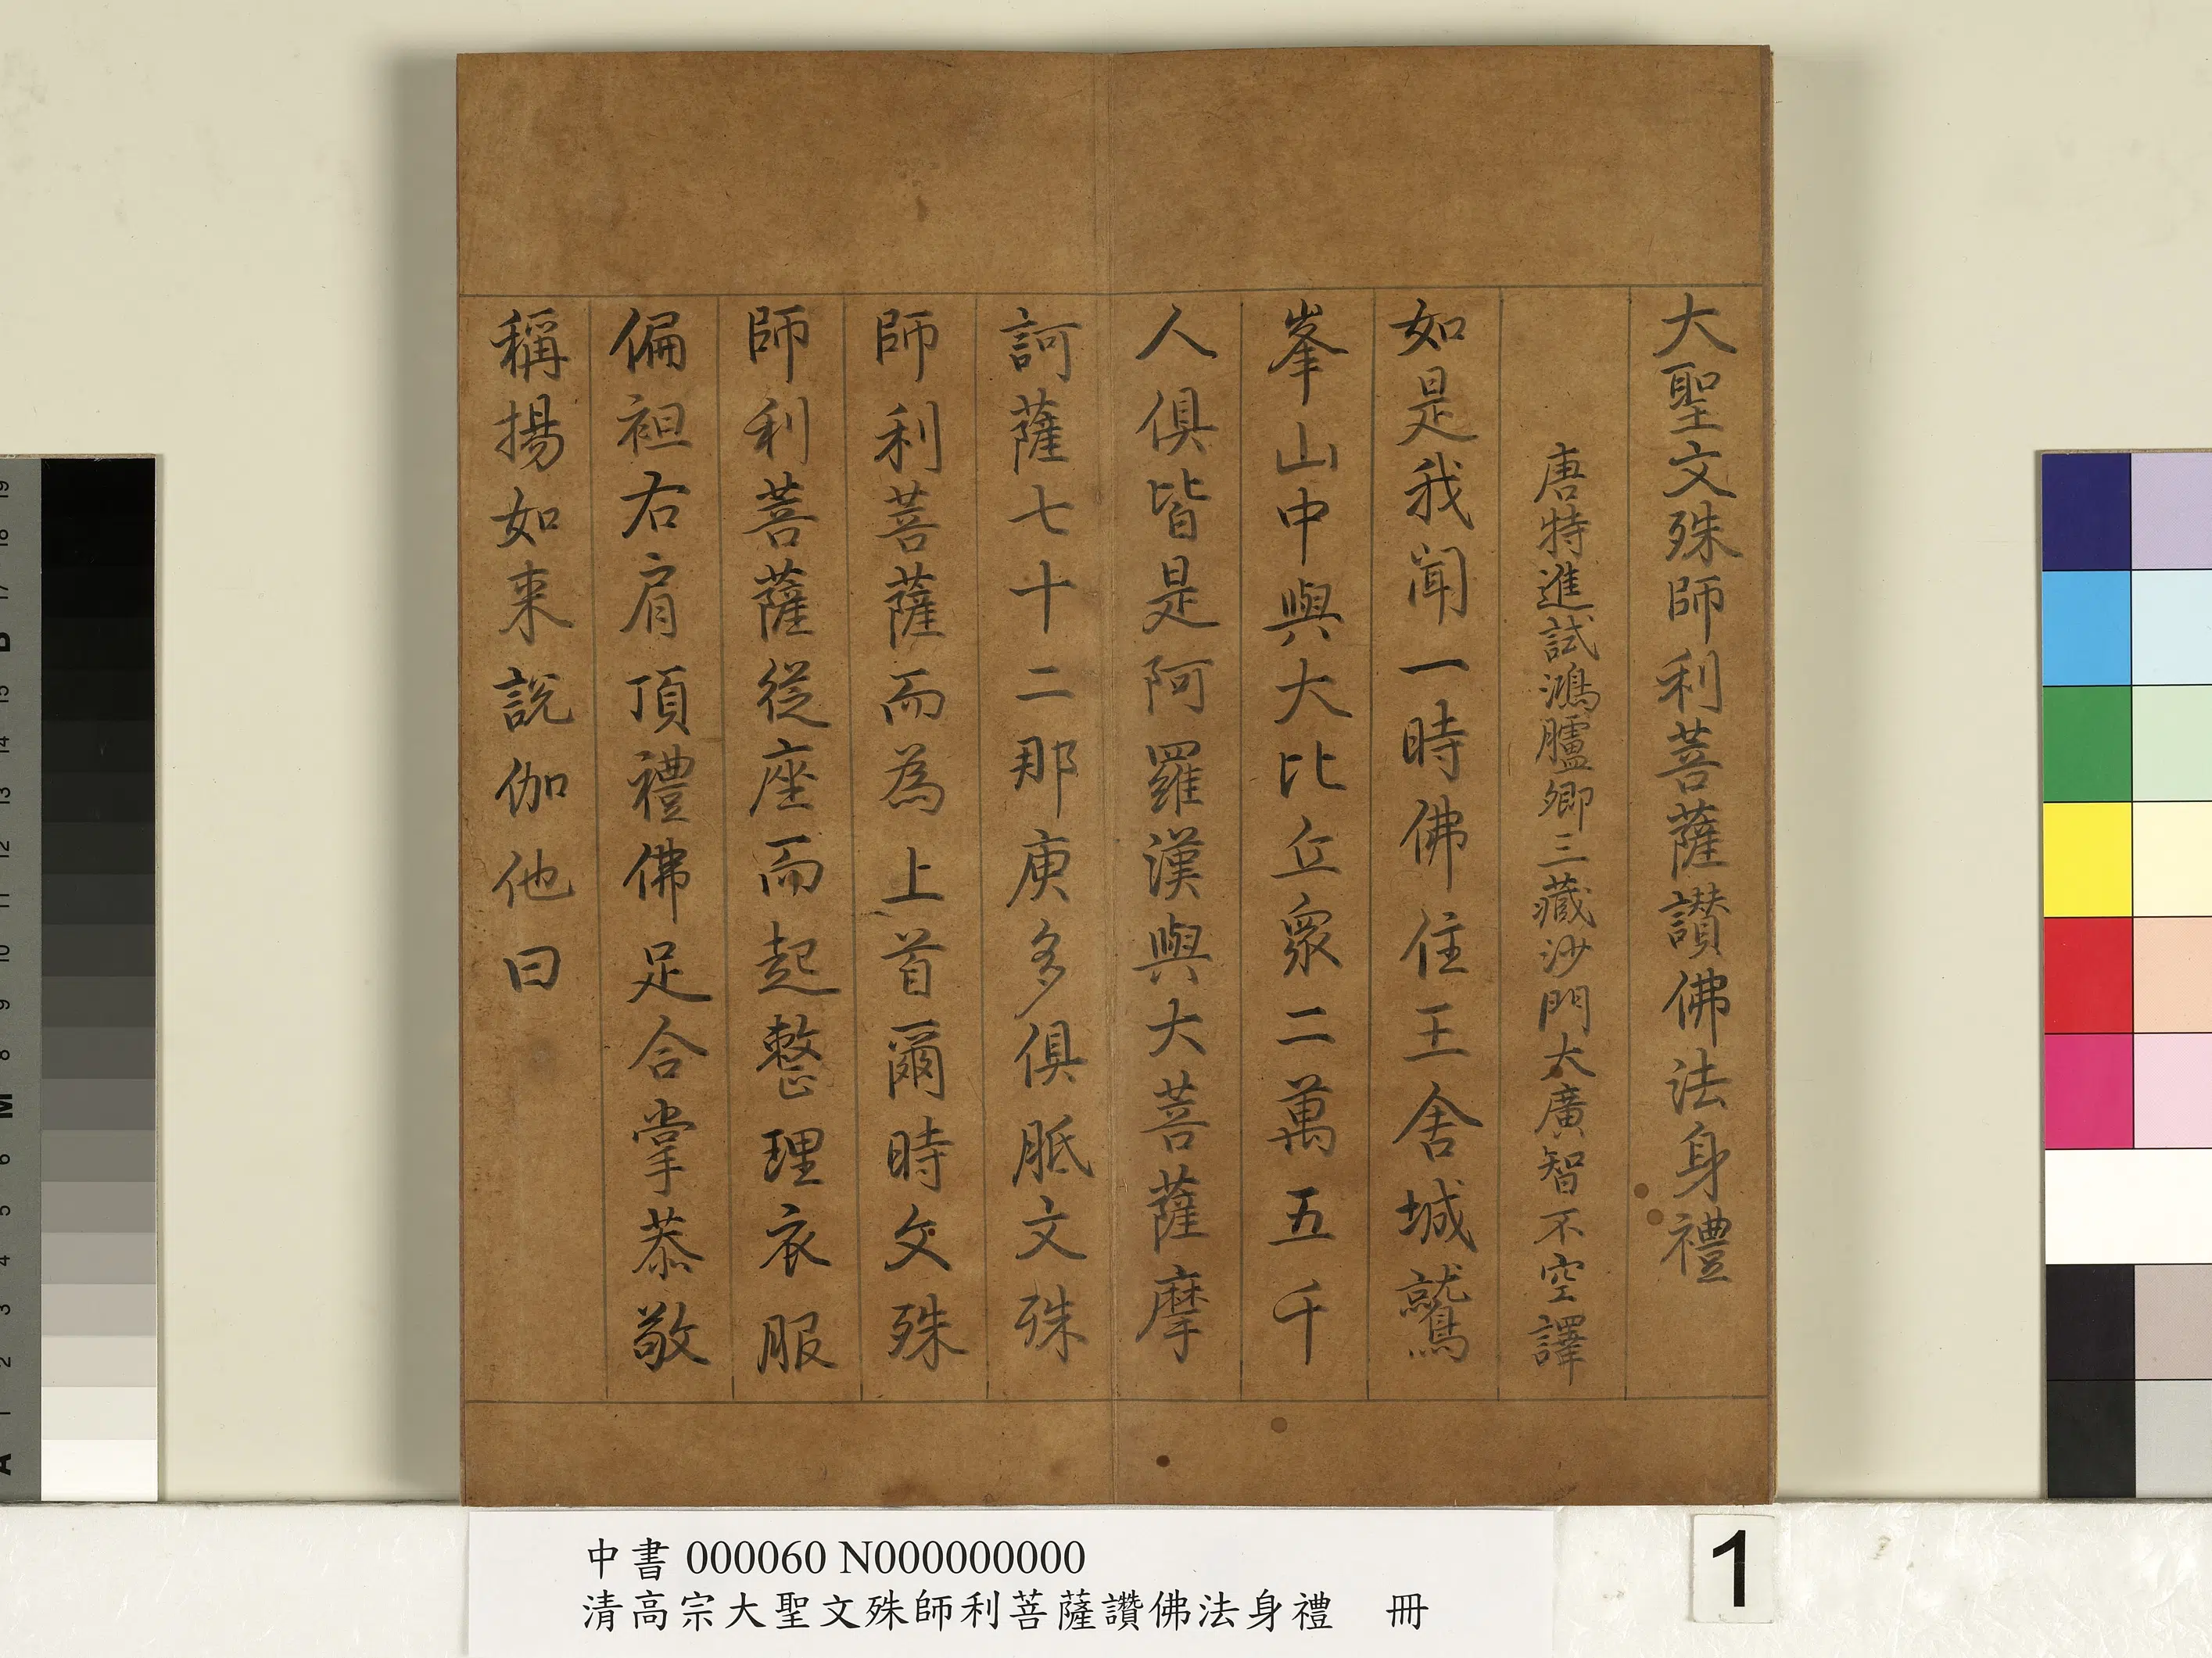 大聖文殊師利菩薩讃佛法身禮
唐特進試鴻臚卿三藏沙門大廣智不空譯
如是我聞一時佛住王舍城鷲
峯山中與大比丘衆二萬五千
人俱皆是阿羅漢與大菩薩摩
訶薩七十二那庾多俱胝文殊
師利菩薩而為上首爾時文殊
師利菩薩從座而起整理衣服
偏袒右肩頂禮佛足合掌恭敬
稱揚如来說伽他曰
中書 000060 N000000000
清高宗大聖文殊師利菩薩讚佛法身禮 冊
1
A 1 2 3 4 5 6 M 8 9 10 11 12 13 14 15 B 17 18 19